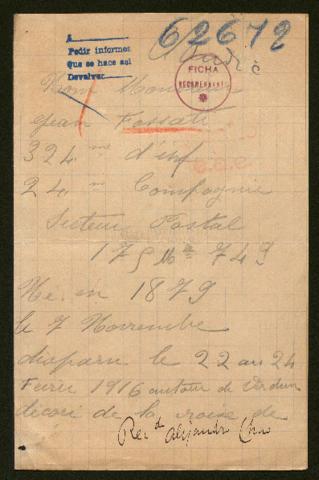 62672
A
Pedir informes
Que se hace así
Devolver
FICHA
Nom Monsieur
Jean Fossati
324 me d'inf
24 m Compagnie
Secteur Postal
175 Mle 749
Né en 1879
le 7 Novembre
disparu le 22 au 24
Février 1916 autour de Verdun
décoré de la croix de
Rev.d Alejandro